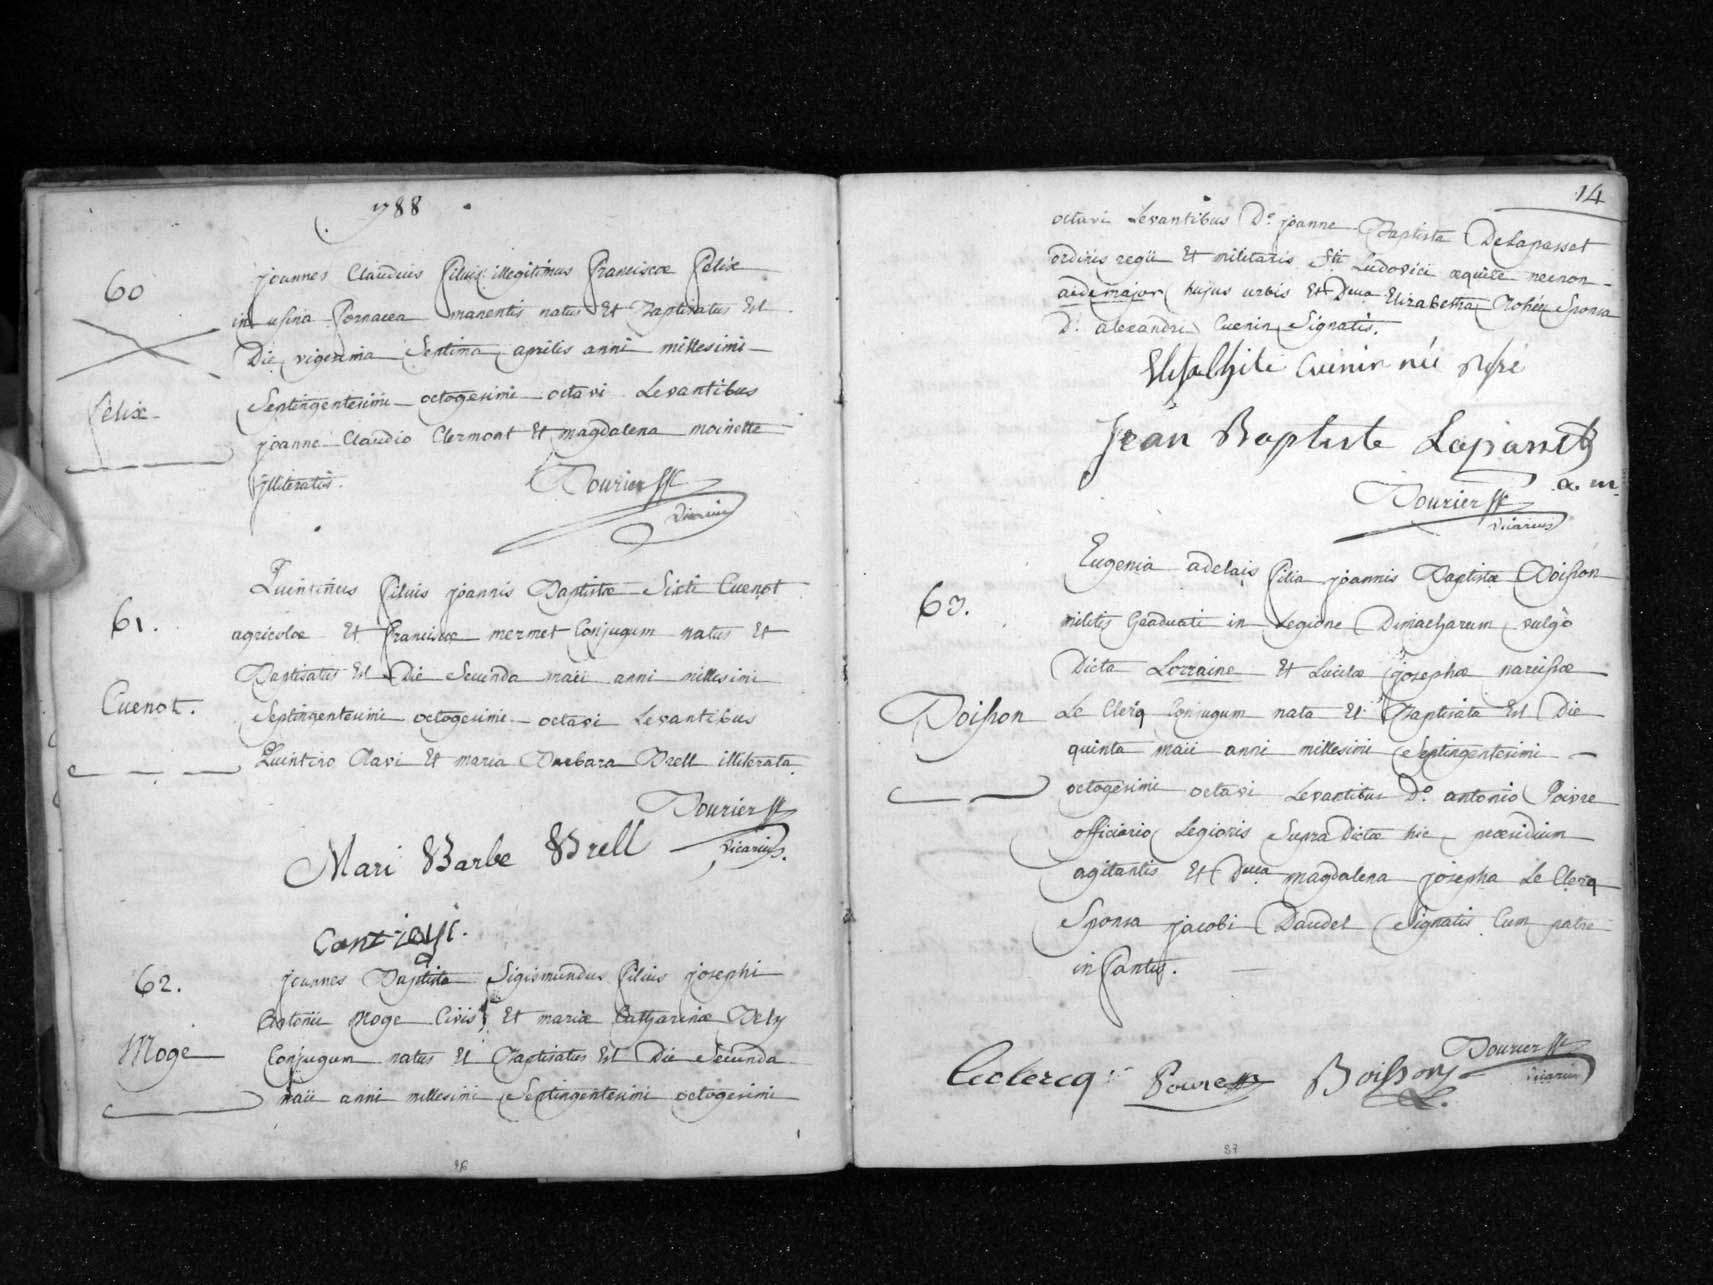 1788
60
Felix
Joannes Claudius filius illegitimus Franciscæ Felix
in usina Fornacea manentis natus Et Baptisatus Est
Die vigesima Septima aprilis anni millesimi
Septingentesimi octogesimi octavi Levantibus
joanne Claudio Clermont Et magdalena moinette
illiteratis.
Bourier
vicarius
61.
Cuenot.
Quintinus filius joannis Baptistæ Sixti Cuenot
agricolæ Et Franciscæ mermet Conjugum natus Et
Baptisatus Est Die Secunda maii anni millesimi
Septingentesimi octogesimi octavi Levantibus
Quintino Clavi Et maria Barbara Brell illiterata
Bourier
vicarius.
Mari Barbe Brell
62.
Moge
joannes Baptista Sigismundus filius josephi
Antonii Moge Civis Et mariæ Catharinæ Bely
Conjugum natus Et Baptisatus Est Die Secunda
maii anni millesimi Septingentesimi octogesimi
86
14
octavi Levantibus D.º joanne Baptista Delapasset
ordinis regii Et militaris Sti Ludovici æquite necnon
aide major hujus urbis Et Dnca Elizabetha Sponsa
D. alexandri Cuenin Signatis.
Cuenin née
Jean Baptiste Lapasset
a. m.
Bourier
vicarius
63.
Boisson
Eugenia adelais filia joannis Baptistæ Boisson
militis Graduati in Legione Dimacharum vulgò
Dicta Lorraine Et Luciæ josephæ narcissæ
Le Clerq Conjugum nata Et Baptisata Est Die
quinta maii anni millesimi Septingentesimi
octogesimi octavi Levantibus D.º antonio Poivre
officiario Legionis Supra Dictæ hic præsidium
agitantis Et Dnca magdalena josepha Le Clerq
Sponsa jacobi Daudel Signatis Cum patre
infantis.
Leclercq
Poivre
Boisson
Bourier
vicarius
87